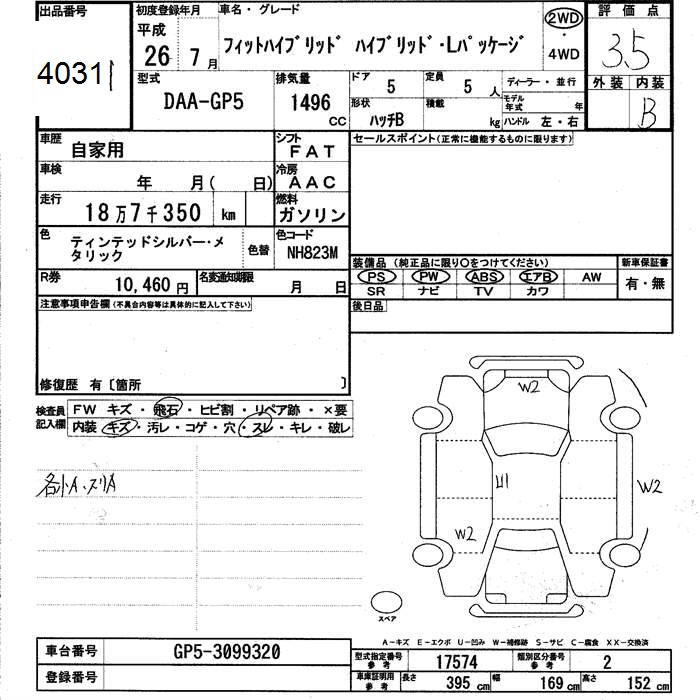 出品番号
4031
初度登録年月
平成
26 7月
車名・グレード
フィットハイブリッド ハイブリッド・Lパッケージ
2WD
・
4WD
評価点
3.5
外装 内装
B
型式
DAA-GP5
排気量
1496
CC
ドア
5
定員
5 人
形状
ハッチB
積載
kg
ディーラー・並行
モデル年式 年
ハンドル 左・右
車歴
自家用
シフト
FAT
セールスポイント(正常に機能するものに限ります)
車検
年 月( 日)
冷房
AAC
走行
18万7千350 km
燃料
ガソリン
色
ティンテッドシルバー・メタリック
色替
色コード
NH823M
R券
10,460円
名変通知期限
月 日
装備品 (純正品に限り〇をつけてください)
PS PW ABS エアB AW
SR ナビ TV カワ
新車保証書
有・無
後日品
注意事項申告欄(不具合内容等は具体的に記入して下さい)
修復歴 有〔箇所 〕
検査員記入欄
FW キズ・飛石・ヒビ割・リペア跡・×要
内装・キズ・汚レ・コゲ・穴・スレ・キレ・破レ
各小A・スリA
W2
U1
W2
W2
スペア
A-キズ E-エクボ U-凹み W-補修跡 S-サビ C-腐食 XX-交換済
車台番号
GP5-3099320
登録番号
型式指定番号
参考
17574
類別区分番号
参考
2
車庫証明用
参考
長さ
395 cm
幅
169 cm
高さ
152 cm